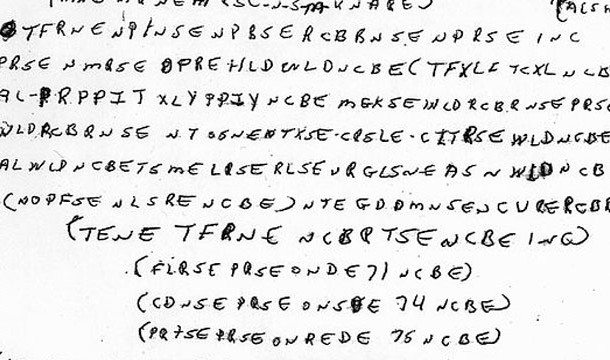 TFRNE NPINSE NPRSERCBBRNSE NPRSE INC
PRSE NMRSE OPREHLDWLDNCBE(TFXLF TCXL NCB
AL-PRPPIT XLYPPIY NCBE MGKSEWLDRCBRNSEPRSE
WLDRCBRNSE NTOSNENTXSE-CRSLE-CITRSE WLDNCBE
ALWLDNCBETSMELRSERLSEURGLSNEASNWLDNCB
(NOPFSE NLSRE NCBE) NTEGDDMNSENCURERCBR
(TENE TFRNE NCBRTSENCBE INC)
(FLRSE PRSE ONDE 71 NCBE)
(CDNSE PRSE ONSDE 74 NCBE)
(PRTSE PRSE ONREDE 75 NCBE)